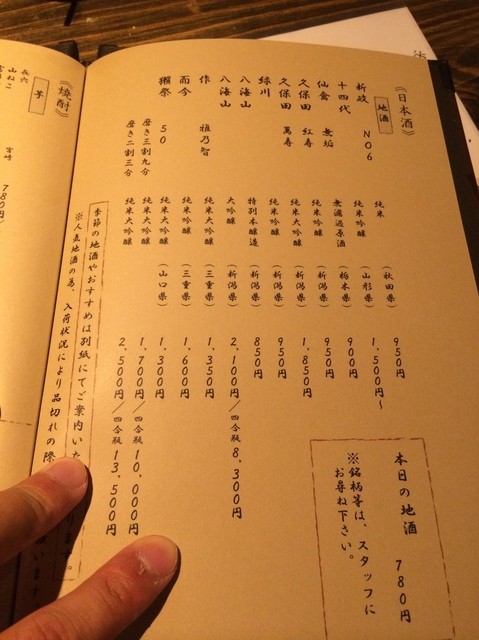 《日本酒》
地酒
新政 NO6 純米 (秋田県) 950円
十四代 純米吟醸 (山形県) 1,500円~
仙禽 無垢 無濾過原酒 (栃木県) 900円
久保田 紅寿 純米吟醸 (新潟県) 950円
久保田 萬寿 純米大吟醸 (新潟県) 1,850円
緑川 純米吟醸 (新潟県) 950円
八海山 特別本醸造 (新潟県) 850円
八海山 大吟醸 (新潟県) 2,100円/四合瓶8,300円
作 雅乃智 純米大吟醸 (三重県) 1,350円
而今 純米吟醸 (三重県) 1,600円
獺祭 50 純米大吟醸 (山口県) 1,300円
磨き三割九分 純米大吟醸 1,700円/四合瓶10,000円
磨き二割三分 純米大吟醸 2,500円/四合瓶13,500円
本日の地酒 780円
※銘柄等は、スタッフに
お尋ね下さい。
季節の地酒やおすすめは別紙にてご案内いた ります。
※人気地酒の為、入荷状況により品切れの際
《焼酎》
芋
山ねこ 宮崎 780円